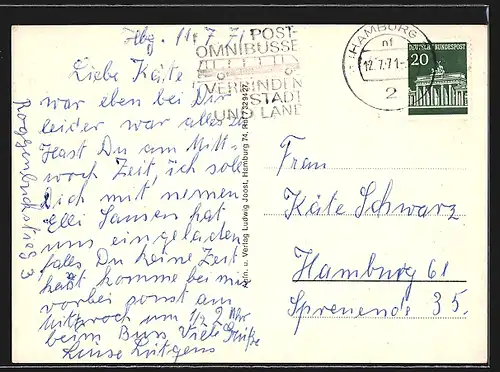 Hbg. 11.7.71
POST-
OMNIBUSSE
VERBINDEN
STADT
UND LAND
HAMBURG
12.7.71
2
DEUTSCHE BUNDESPOST
20
Liebe Käte
war eben bei Dir
leider war alles zu
Hast Du am Mitt-
woch Zeit, ich soll
Dich mit nemen
Elli Jansen hat
uns eingeladen
falls Du keine Zeit
hast komme bei mir
vorbei sonst am
Mittwoch um 1/2 2 Uhr
beim Buss Viele Grüße
Luise Lütgens
Roggenbuckstieg 3
u. Verlag Ludwig Joost, Hamburg 74,
Frau
Käte Schwarz
Hamburg 61
Spreuende 35.